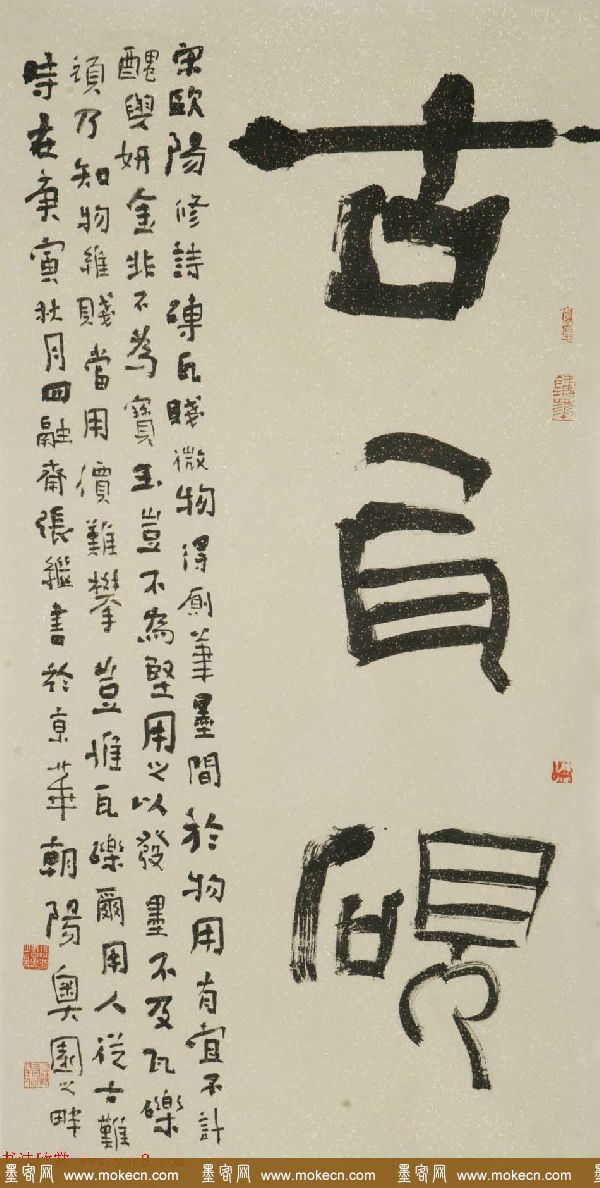 古瓦硯
宋歐陽修詩磚瓦賤微物得廁筆墨間於物用有宜不計
醜與妍金非不為寶玉豈不為堅用之以發墨不及瓦礫
頑乃知物雖賤當用價難攀豈惟瓦礫爾用人從古難
時在庚寅秋月四融齋張繼書於京華朝陽奧園之畔
书法欣赏 www.yac8.com
墨客网 www.mokecn.com 墨客网 www.mokecn.com 墨客网 www.mokecn.com